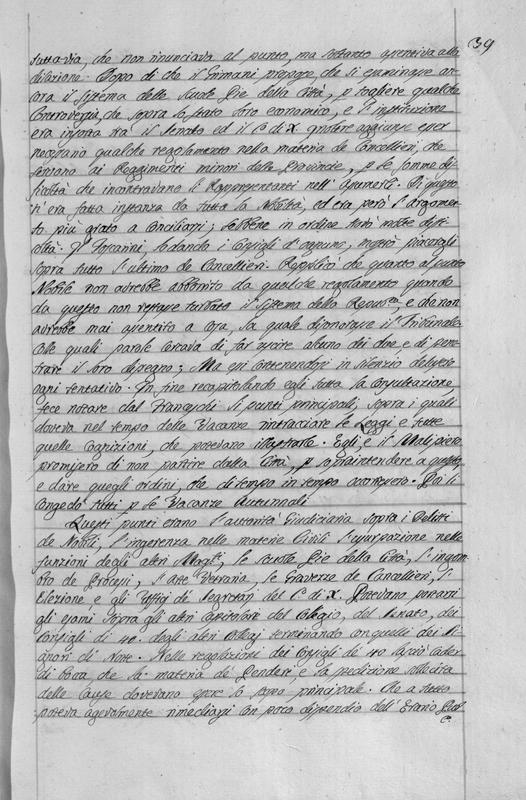 39
tuttavia, che non rinunciava al punto, ma soltanto assentiva alla
dilazione. Dopo di che il Grimani propose, che si esaminasse an=
cora il sistema delle Scuole Pie della Città, p togliere qualche
Controversia, che sopra lo stato loro economico, e l'instituzione
era insorta tra il Senato ed il C di X. credere aggiunse esser
necessario qualche regolamento nella materia de Cancellieri, che
servono ai Reggimenti minori delle Provincie, p le somme dif=
ficoltà che incontravano i Rappresentanti nell' averne. Di questo
s'era fatta instanza da tutta la Nobiltà, ed era però l'argomen=
to più grato a Conciliarsi; sebbene in ordine molte diffi=
coltà. Il Foscarini, lodando i consigli d'ognuno, mostrò piacergli
sopra tutto l'ultimo de Cancellieri. Replicò che quanto al
Nobile non avrebbe abborrito da qualche regolamento quando
da questo non restasse turbato il sistema della Repub.ca e che non
avrebbe mai assentito a cosa, la quale disonorasse il Tribunale.
Colle quali parole cercava di far uscire alcuno dei due e di pene=
trare il loro disegno; Ma essi contenendosi in silenzio deluse
ogni tentativo. In fine recapitolando egli tutta la Consultazione,
fece notare dal Franceschi li punti principali, sopra i quali
doveva nel tempo delle Vacanze rintracciare le Leggi e tutte
quelle Cognizioni, che potevano illustrarlo. Egli e il Malipiero
promisero di non partire dalla Città, p sopraintendere a questo,
e dare quegli ordini, che di tempo in tempo Poi li
congedò tutti p le Vacanze Autunnali.
Questi punti erano l'autorità Giudiciaria sopra i Delitti
de Nobili, l'ingerenza nelle materie Civili l'usurpazione nelle
funzioni degli altri Magti, le Scuole Pie della Città, l'
di Processi, l'Arte Vetraria, le de Cancellieri, l'
Elezione e gli Uffizj de' Segretarj del C di X. Dovevano
gli esami sopra gli altri Capitolari del Collegio, del Senato, dei
Consigli di 40. degli altri Collegj terminando con quelli dei Si=
gnori di Notte. Nelle regolazioni dei Consigli di 40 lasciò cader=
di bocca che la materia de' Pendenti e la spedizione sollecita
delle Cause dovevano essere lo scopo principale. Che a tutto
poteva agevolmente rimediarsi con poco dispendio dell' Erario Publ=